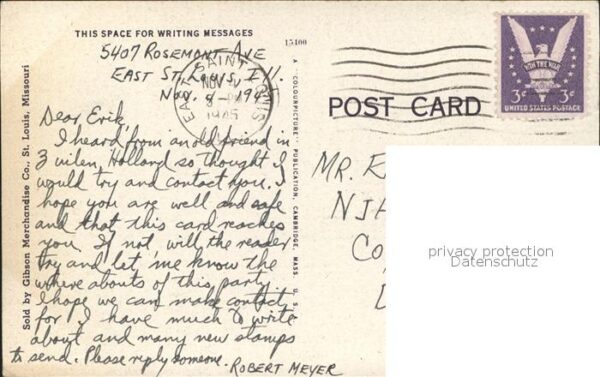 THIS SPACE FOR WRITING MESSAGES
15100
5407 ROSEMONT AVE
EAST ST. LOUIS, ILL.
NOV. 4 - 1945
Dear Erik
I heard from an old friend in
Zuilen, Holland so thought I
would try and contact you. I
hope you are well and safe
and that this card reaches
you. If not, will the reader
try and let me know the
where abouts of this party.
I hope we can make contact,
for I have much to write
about and many new stamps
to send. Please reply someone.
ROBERT MEYER
Sold by Gibson Merchandise Co., St. Louis, Missouri
A "COLOURPICTURE" PUBLICATION, CAMBRIDGE, MASS., U. S. A.
EAST SAINT LOUIS
NOV
1945
POST CARD
WIN THE WAR
3¢ 3¢
UNITED STATES POSTAGE
MR.
privacy protection
Datenschutz